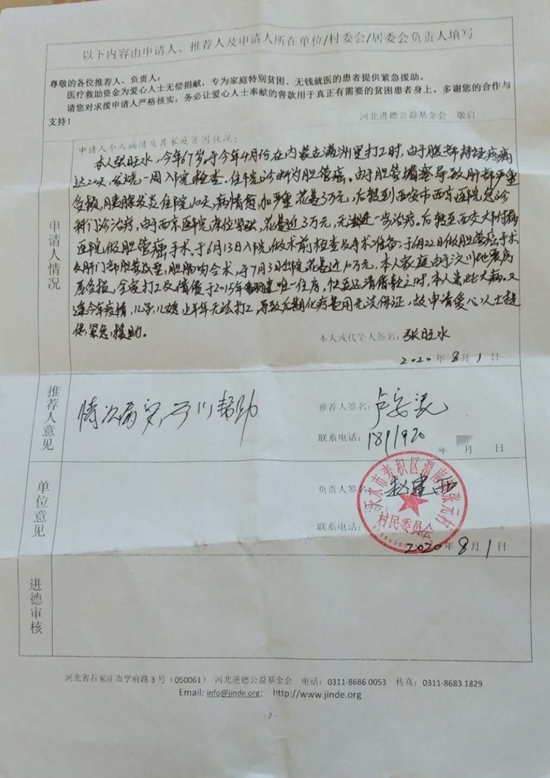 以下内容由申请人、推荐人及申请人所在单位/村委会/居委会负责人填写
尊敬的各位推荐人、负责人:
医疗救助资金为爱心人士无偿捐献,专为家庭特别贫困、无钱就医的患者提供紧急援助。
请您对求援申请人严格核实,务必让爱心人士奉献的善款用于真正有需要的贫困患者身上。多谢您的合作与
支持!
河北进德公益基金会 敬启
申请人个人病情及其家庭贫困状况:
本人张旺水,今年67岁于今年4月份在内蒙古满洲里打工时,由于腹部持续疼痛
达20天,发烧一周入院检查。住院诊断为胆管癌,由于胆管堵塞导致肝部严重
受损,胰腺炎住院10天,病情加严重花费3万元,后转到西安市西京医院急诊
科门诊治疗,由于西京医院床位紧张,花费近3万元,无法进一步治疗。后转至西安大附属
医院做胆管癌手术,于6月13日入院做术前检查与手术准备,于6月22日做胆管癌手术
及肝门部胆管成型,胆肠吻合术,于7月3日出院花费近10万元,本人家庭由于汶川地震房
屋受损,全家打工及借债于2015年重建唯一住房,
连今年疫情,儿子儿媳上半年无法打工,导致后期化疗费用无法保证,故申请爱心人士提
供紧急援助。
申请人情况
本人或代笔人签名: 张旺水
2020年8月1日
推荐人意见
情况属实,予以帮助
推荐人签名:
联系电话: 1811920
年 月 日
单位意见
负责人签名: 赵建西
天水市麦积区渭南镇张元村
村民委员会
联系电话:
2020年8月1日
进德审核
河北省石家庄市学府路3号(050061) 河北进德公益基金会 电话:0311-8686 0053 传真:0311-8683 1829
Email: info@jinde.org; http://www.jinde.org